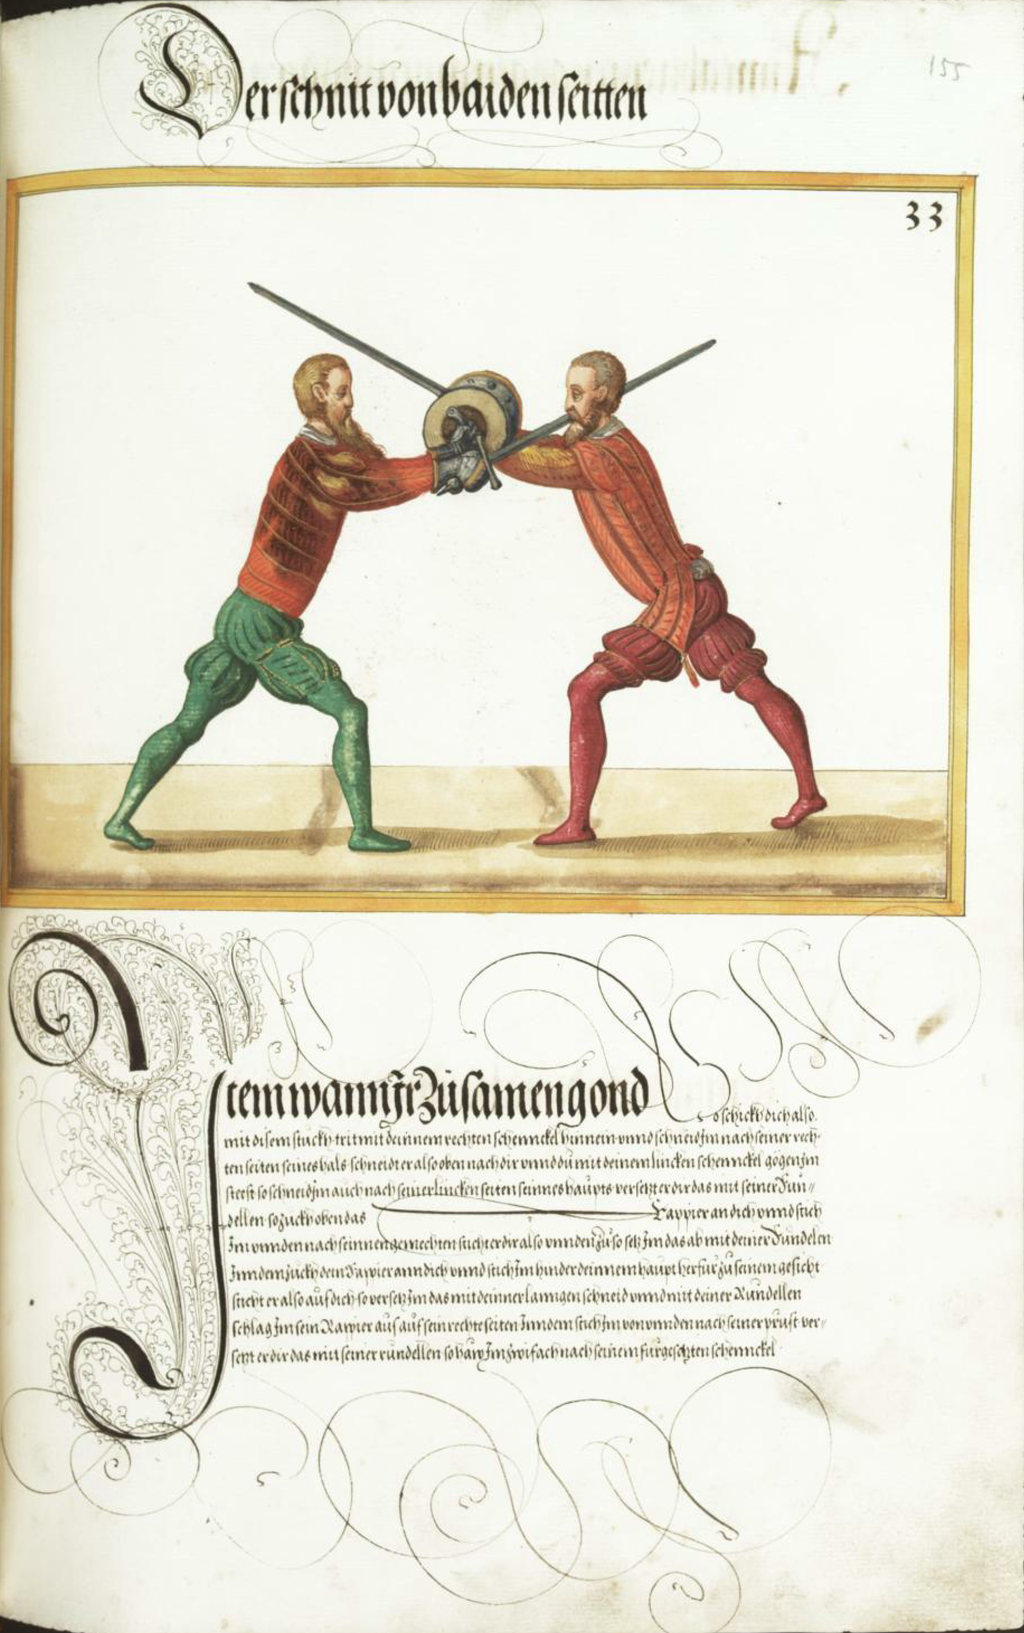 Der schnit von baiden seitten
155
33
Item wann Jr Zusamen gond so schickh dich also
mit disem stuckh trit mit deinnem rechten schennckel hinnein vnnd schneid Jm nach seiner rech-
ten seiten seines hals schneidt er also oben nach dir vnnd du mit deinem lincken schennckel gögen Jm
steest so schneid Jm auch nach seiner lincken seiten seinnes haupts versetzt er dir das mit seiner Run-
dellen so zuckh oben das Rappier an dich vnnd stich
Jm vnnden nach seinnen gemechten sticht er dir also vnnden zu so setz Jm das ab mit deiner Rundelen
Inn dem zuckh dein Rappier ann dich vnnd stich Jm hinder deinnem haupt herfur zu seinem gesicht
sticht er also auf dich so versetz Jm das mit deinner lanngen schneid vnnd mit deiner Rundellen
schlag Jm sein Rappier aus auf sein rechte seiten Inn dem stich Jm von vnnden nach seiner prust ver-
setzt er dir das mit seiner rundellen so haw Jm zwifach nach seinem furgesetzten schennckel